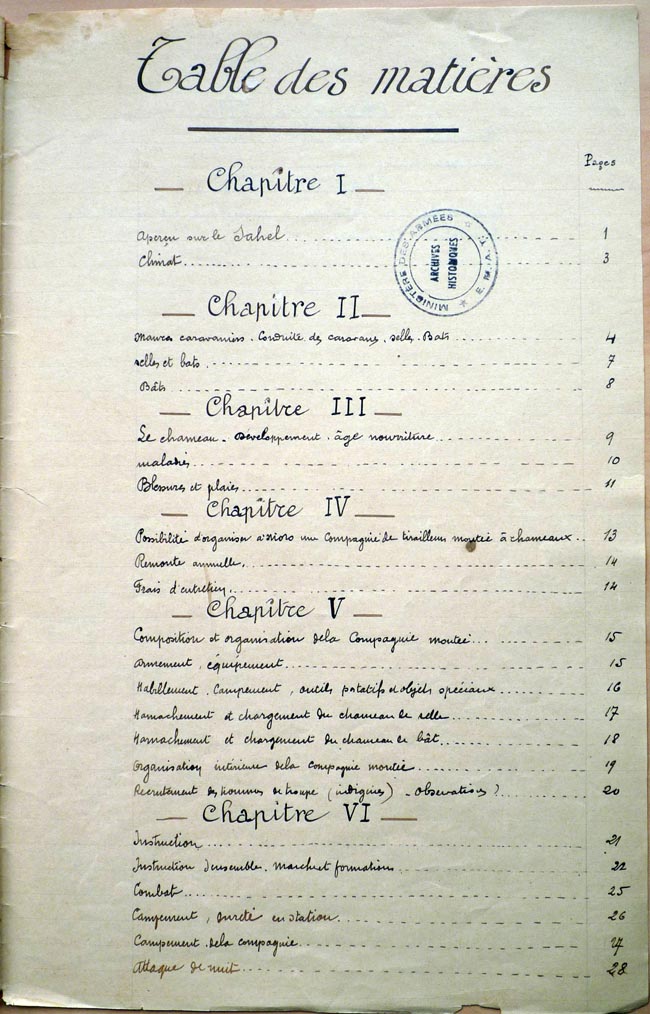 Table des matières
Pages
Chapitre I
Aperçu sur le Sahel 1
Climat 3
MINISTÈRE DES ARMÉES
ARCHIVES
HISTORIQUES
E.M.A.T.
Chapitre II
Maures caravaniers. Conduite des caravans. selles. Bats 4
selles et bats 7
Bâts 8
Chapitre III
Le chameau. Développement. âge nourriture 9
maladies 10
Blessures et plaies 11
Chapitre IV
Possibilité d'organiser à une Compagnie de tirailleurs montée à chameaux 13
Remonte annuelle. 14
Frais d'entretien 14
Chapitre V
Composition et organisation de la Compagnie montée 15
armement, équipement 15
Habillement. Campement, outils portatifs et objets spéciaux 16
Harnachement et chargement du chameau de selle 17
Harnachement et chargement du chameau de bât 18
Organisation intérieure de la compagnie montée 19
Recrutement des hommes de troupe (indigènes) - Observations ? 20
Chapitre VI
Instruction 21
Instruction d'ensemble. marches et formations 22
Combat 25
Campement, sureté en station 26
Campement de la compagnie 27
Attaque de nuit 28